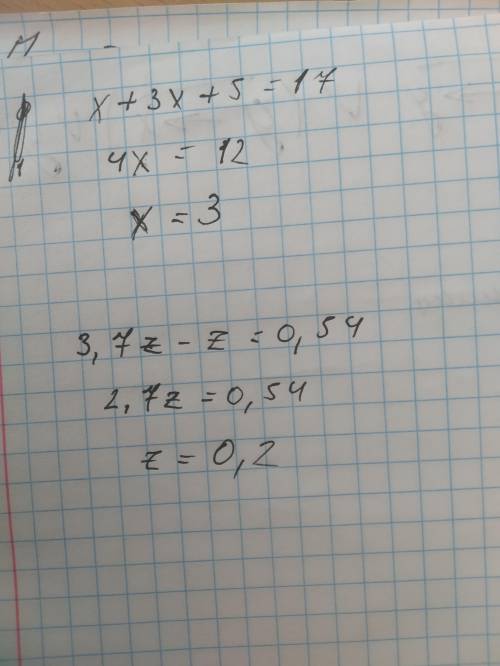 x + 3x + 5 = 17
4x = 12
x = 3
3,7z - z = 0,54
2,7z = 0,54
z = 0,2